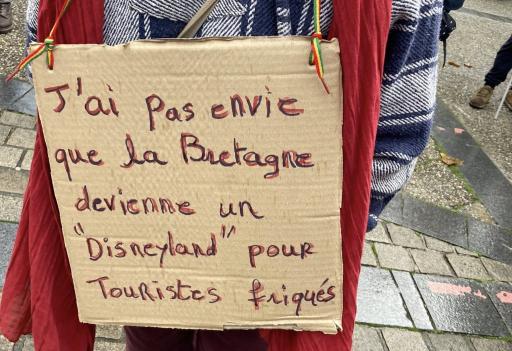 J'ai pas envie
que la Bretagne
devienne un
"Disneyland" pour
Touristes friqués